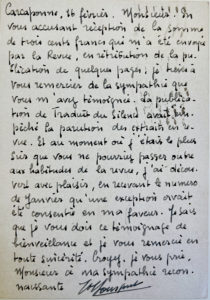 Carcaponne, 16 février. Monsieur! En
vous accusant réception de la somme
de trois cents francs qui m'a été envoyé
par la Revue, en rétribution de la pu-
blication de quelques pages, je tiens à
vous remercier de la sympathie que
vous m'avez témoignée. La publica-
tion de Traduit du Silence avait em-
pêché la parution des extraits en re-
vue. Et au moment où j'étais le plus
sûr que vous ne pourriez passer outre
aux habitudes de la revue, j'ai décou-
vert avec plaisir, en recevant le numéro
de Janvier qu'une exception avait
été consentie en ma faveur. Je sais
que je vous dois ce témoignage de
bienveillance et je vous remercie en
toute sincérité. Croyez, je vous prie,
Monsieur à ma sympathie recon-
naissante